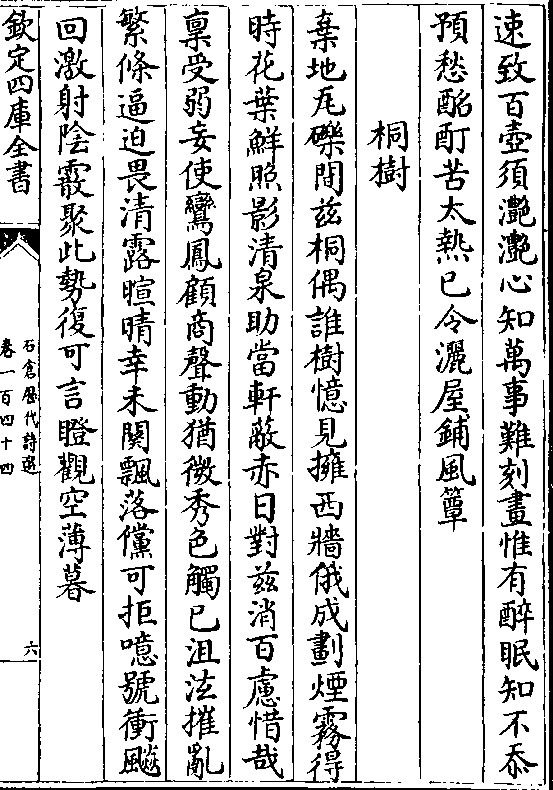 速致百壺須灔灔心知萬事難刻畫惟有醉眠知不忝
預愁酩酊苦太熱已令灑屋鋪風簟
桐樹
棄地瓦礫間兹桐偶誰樹憶見擁西牆俄成劃煙霧得
時花葉鮮照影清泉助當軒敵赤日對兹消百慮惜哉
稟受弱妄使鸞鳳顧商聲動猶微秀色觸已沮泫摧亂
繁條逼迫畏清露暄晴幸未闋飄落儻可拒噫號衝飈
回激射陰霰聚此勢復可言瞪觀空薄暮
欽定四庫全書
石倉歷代詩選
卷一百四十四
六